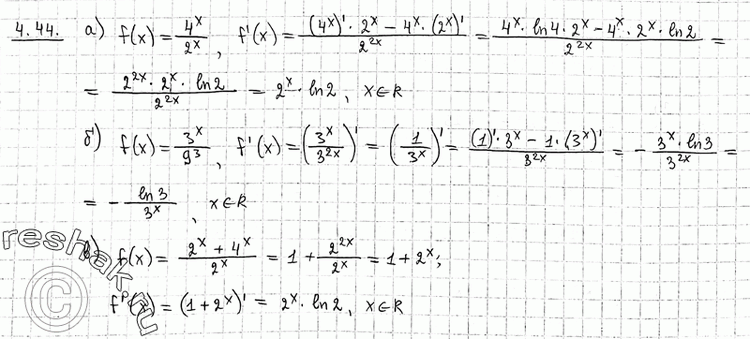 4.44. a) f(x) = 4^x/2^x, f'(x) = ((4^x)' · 2^x − 4^x · (2^x)')/2^{2x} = (4^x · ln4 · 2^x − 4^x · 2^x · ln2)/2^{2x} =
= (2^{2x} · 2^x · ln2)/2^{2x} = 2^x · ln2, x∈R
б) f(x) = 3^x/9^3, f'(x) = (3^x/3^{2x})' = (1/3^x)' = ((1)' · 3^x − 1 · (3^x)')/3^{2x} = − (3^x · ln3)/3^{2x} =
= − ln3/3^x, x∈R
в) f(x) = (2^x + 4^x)/2^x = 1 + 2^{2x}/2^x = 1 + 2^x;
f'(x) = (1+2^x)' = 2^x · ln2, x∈R
reshak.ru
©